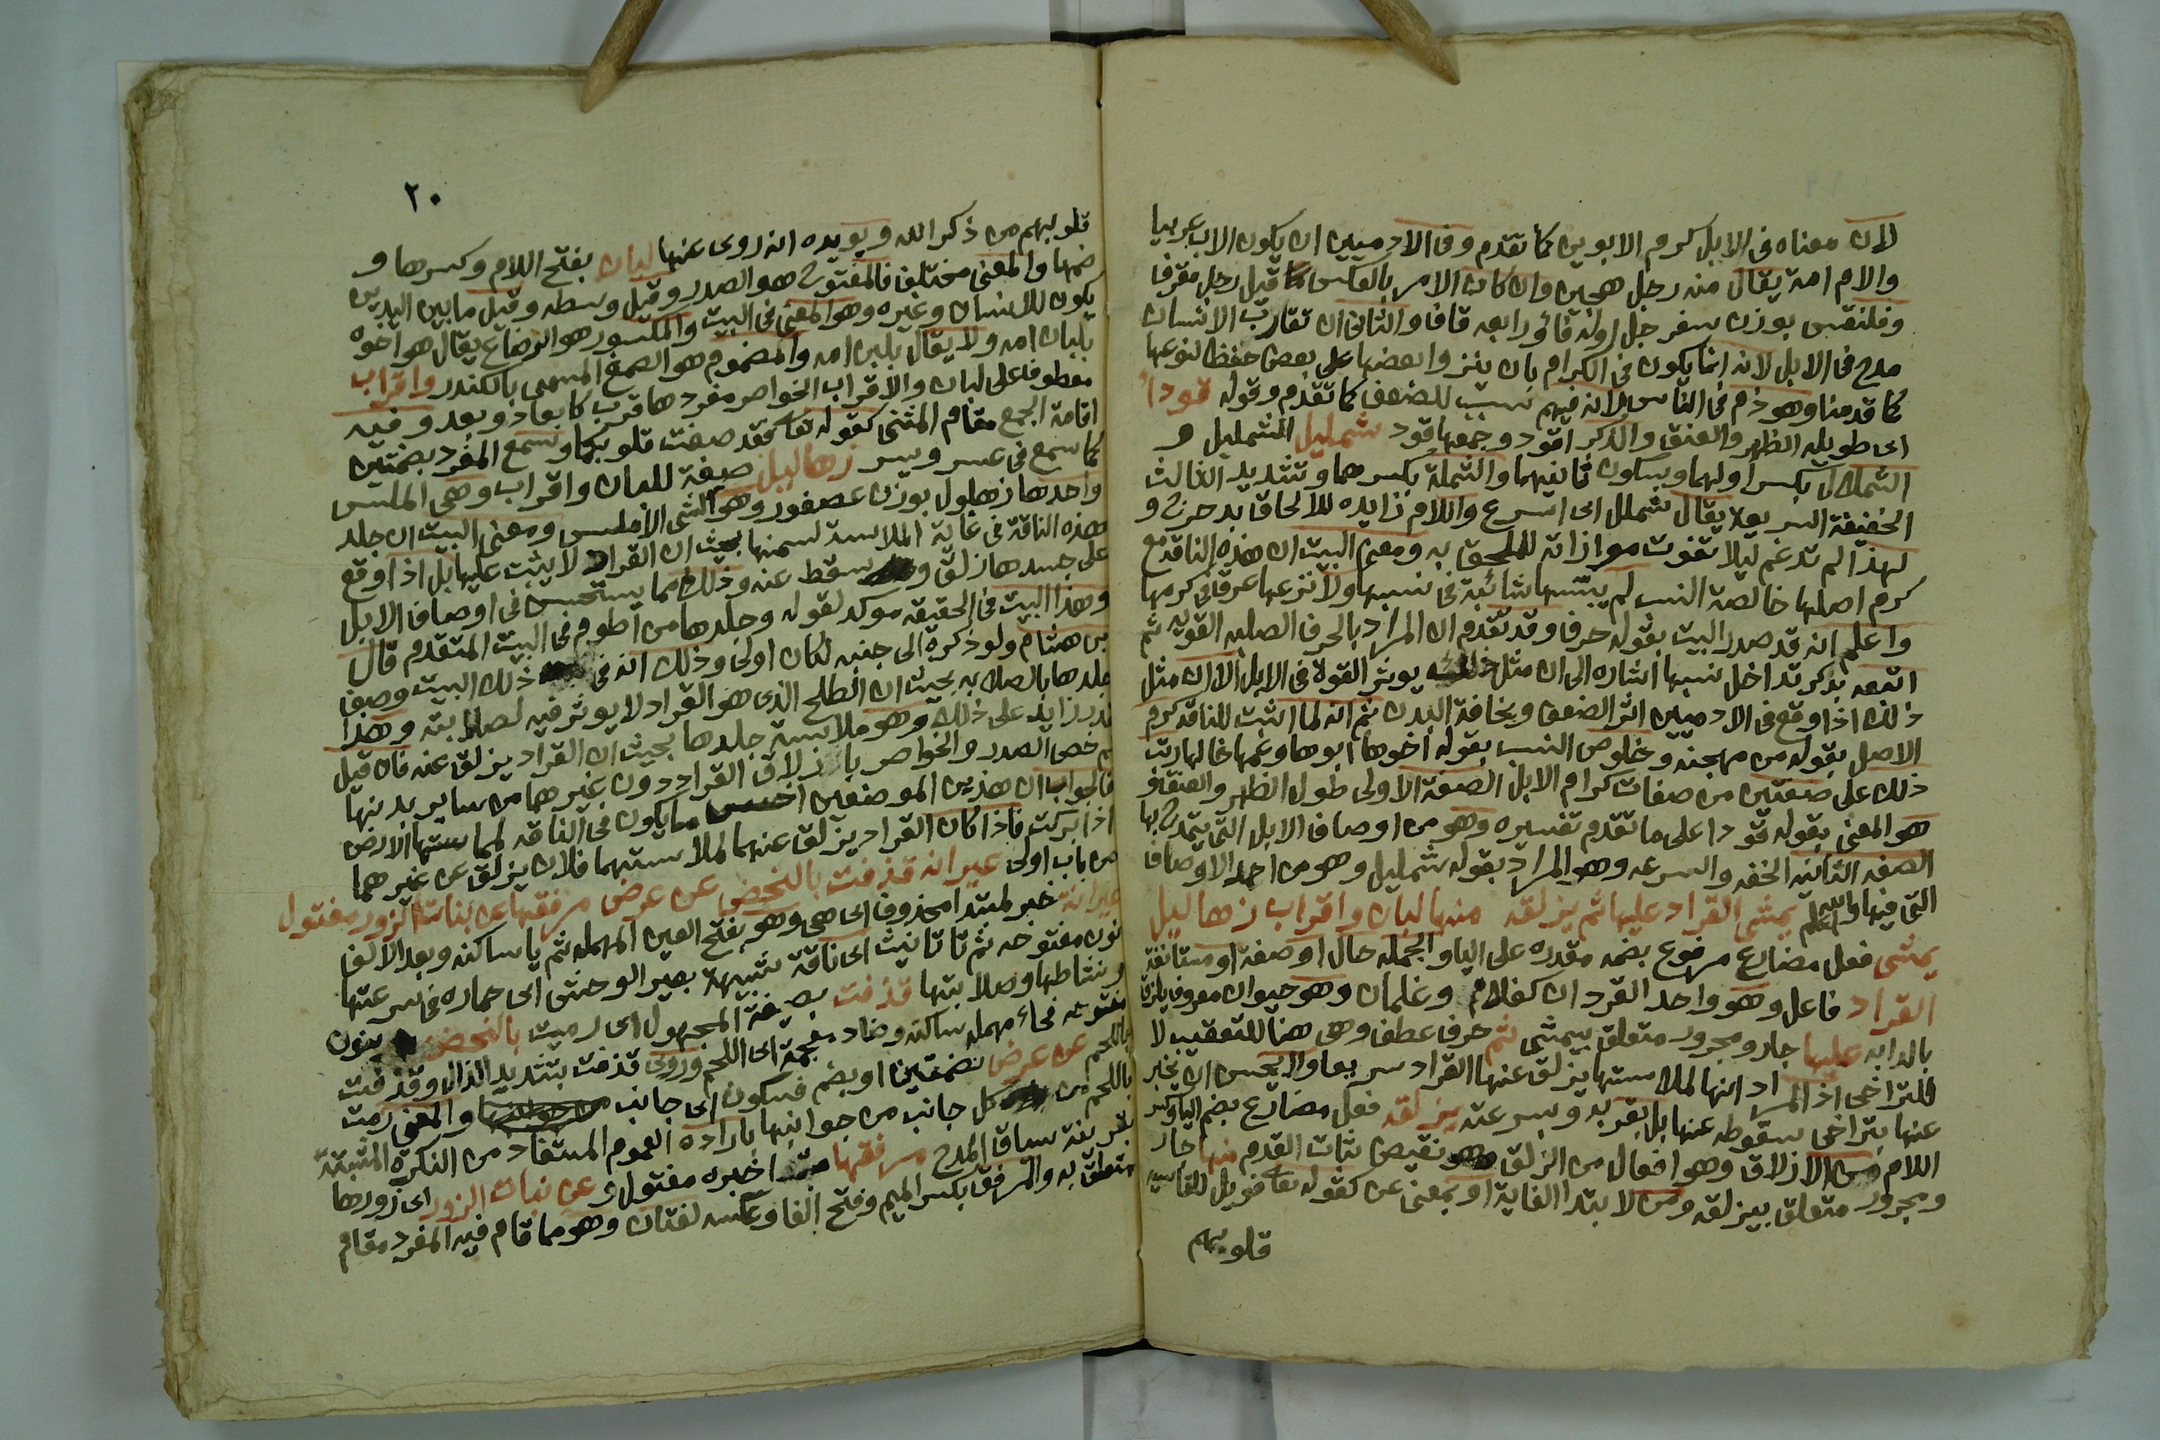 لان معناه فى الابل كرم الابوين كما تقدم وفى الادميين ان يكون الاب عربيا
والام امة يقال منه رجل هجين وان كان الامر بالعكس قيل رجل مقرف
وفلنقس بوزن سفرجل اوله فاء ورابعه قاف والثانى ان تقارب الانساب
مدح فى الابل لانه انما يكون فى الكرام بان ينزوا بعضها على بعض حفظا لنوعها
كما قدمنا وهو ذم فى الناس لانه فيهم سبب للضعف كما تقدم وقوله قوداء
اى طويلة الظهر والعنق والذكر اقود وجمعها قود شمليل الشمليل و
الشملال بكسر اولهما وسكون ثانيهما والشملة بكسرهما وتشديد الثالث
الخفيفة السريعة يقال شملل اى اسرع واللام زايده للالحاق بدحرج و
لهذا لم تدغم ليلا تفوت موازاته للملحق به ومعنى البيت ان هذه الناقه مع
كرم اصلها خالصة النسب لم يشبها شائبة فى نسبها ولا نزعها عرق فى كرمها
واعلم انه قد صدر البيت بقوله حرف وقد تقدم ان المراد بالحرف الصلبه القويه ثم
اتبعه بذكر تداخل نسبها اشاره الى ان مثل ذلك يوثر القوة فى الابل الا ان مثل
ذلك اذا وقع فى الادميين اثر الضعف ونحافة البدن ثم انه لما اثبت للناقه كرم
الاصل بقوله من مهجنه وخلوص النسب بقوله اخوها ابوها وعمها خالها رتب
ذلك على صفتين من صفات كرام الابل الصفة الاولى طول الظهر والعنق و
هو المعنى بقوله قودا على ما تقدم تفسيره وهو من اوصاف الابل التى يتمدح بها
الصفه الثانيه الخفه والسرعه وهو المراد بقوله شمليل وهو من احد الاوصاف
التى فيها والله اعلم يمشى القراد عليها ثم يزلقه منها لبان واقراب زهاليل
يمشى فعل مضارع مرفوع بضمه مقدره على اليا والجمله حال او صفة او مستانفة
القراد فاعل وهو واحد القردان كغلام وغلمان وهو حيوان معروف يلزق
بالدابه عليها جار ومجرور متعلق بيمشى ثم حرف عطف وهى هنا للتعقيب لا
للتراخى اذ المراد انها لملاستها يزلق عنها القراد سريعا ولا يحسن ان يخبر
عنها بتراخى سقوطه عنها بل بقربه وسرعته يزلقه فعل مضارع بضم اليا وكسر
اللام من الازلاق وهو افعال من الزلق وهو نقيض ثبات القدم منها جار
ومجرور متعلق بيزلقه ومن لابتدا الغاية او بمعنى عن كقوله تعا فويل للقاسيه
قلوبهم
٢٠
قلوبهم من ذكر الله ويويده انه روى عنها لبان بفتح اللام وكسرها و
ضمها والمعنى مختلف فالمفتوح هو الصدر وقيل وسطه وقيل ما بين اليدين
يكون للانسان وغيره وهو المعنى فى البيت والمكسور هو الرضاع يقال هو اخوه
بلبان امه ولا يقال بلبن امه والمضموم هو الصمغ المسمى بالكندر واقراب
معطوف على لبان والاقراب الخواصر مفردها قرب كابعاد وبعد وفيه
اقامة الجمع مقام المثنى كقوله تعا فقد صغت قلوبكما وسمع المفرد بضمتين
كما سمع فى عسر ويسر زهاليل صفة للبان واقراب وهى الملس
واحدها زهلول بوزن عصفور وهو الشى الاملس ومعنى البيت ان جلد
هذه الناقة فى غاية الملاسة لسمنها بحيث ان القراد لا يثبت عليها بل اذا وقع
على جسدها زلق وسقط عنه وذلك مما يستحسن فى اوصاف الابل
وهذا البيت فى الحقيقه موكد لقوله وجلدها من اطوم فى البيت المتقدم قال
بن هشام ولو ذكره الى جنبه لكان اولى وذلك انه فى ذلك البيت وصف
جلدها بالصلابه بحيث ان الطلح الذى هو القراد لا يوثر فيه لصلابته وهذا
قدر زايد على ذلك وهو ملاسة جلدها بحيث ان القراد يزلق عنه فان قيل
لم خص الصدر والخواصر بازلاق القراد دون غيرهما من ساير بدنها
فالجواب ان هذين الموضعين اخشن ما يكون فى الناقه لمماستها الارض
اذا بركت فاذا كان القراد يزلق عنهما لملاستهما فلان يزلق عن غيرهما
من باب اولى عيرانه قذفت بالنحض عن عرض مرفقها عن بنات الزور مفتول
عيرانة خبر لمبتدا محذوف اى هى وهو بفتح العين المهمله ثم يا ساكنه وبعد الالف
نون مفتوحه ثم تا تانيث اى ناقة شبيهة بعير الوحش اى حماره فى سرعتها
ونشاطها وصلابتها قذفت بصيغة المجهول اى رميت بالنحض بنون
مفتوحه فحاء مهمله ساكنه وضاد معجمة اى اللحم وروى قذفت بتشديد الذال وقذفت
باللحم عن عرض بضمتين او بضم فسكون اى جانب والمعنى رمت
باللحم من كل جانب من جوانبها بارادة العموم المستفاد من النكرة المثبتة
بقرينة سياق المدح مرفقها مبتدا خبره مفتول عن بنات الزور اى زورها
متعلق به والمرفق بكسر الميم وفتح الفا وعكسه لغتان وهو مما قام فيه المفرد مقام